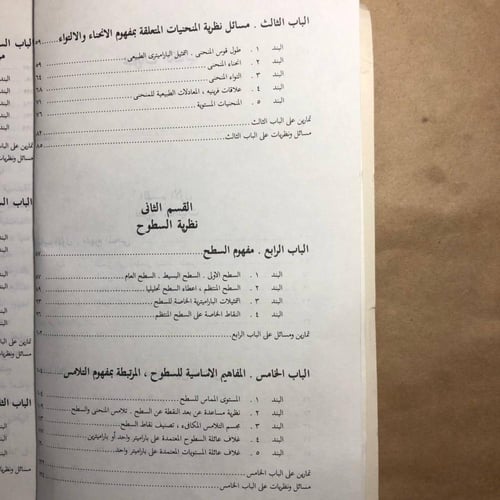 الباب الثالث . مسائل نظرية المنحنيات المتعلقة بمفهوم الانحناء والالتواء ٥٩
البند ١ . طول قوس المنحنى . التمثيل البارامیتری الطبيعى ٥٩
البند ٢ . انحناء المنحنى ٦٤
البند ٣ . التواء المنحنى ٦٨
البند ٤ . علاقات فرينيه ، المعادلات الطبيعية للمنحنى ٧١
البند ٥ . المنحنيات المستوية ٧٦
تمارين على الباب الثالث ٨٢
مسائل ونظريات على الباب الثالث ٨٥
القسم الثانى
نظرية السطوح
الباب الرابع . مفهوم السطح
البند ١ . السطح الاولى . السطح البسيط . السطح العام
البند ٢ . السطح المنتظم ، اعطاء السطح تحليليا
البند ٣ . التمثيلات البارامترية الخاصة للسطح
البند ٤ . النقاط الخاصة على السطح المنتظم
تمارين ومسائل على الباب الرابع
الباب الخامس . المفاهيم الاساسية للسطوح ، المرتبطة بمفهوم التلامس
البند ١ . المستوى المماس للسطح
البند ٢ . نظرية مساعدة عن بعد النقطة عن السطح . تلامس المنحنى والسطح
البند ٣ . مجسم التلامس المكافىء ، تصنيف نقاط السطح
البند ٤ . غلاف عائلة السطوح المعتمدة على بارامتر واحد أو بارامترين
البند ٥ . غلاف عائلة المستويات المعتمدة على بارامتر واحد
تمارين على الباب الخامس
مسائل ونظريات على الباب الخامس